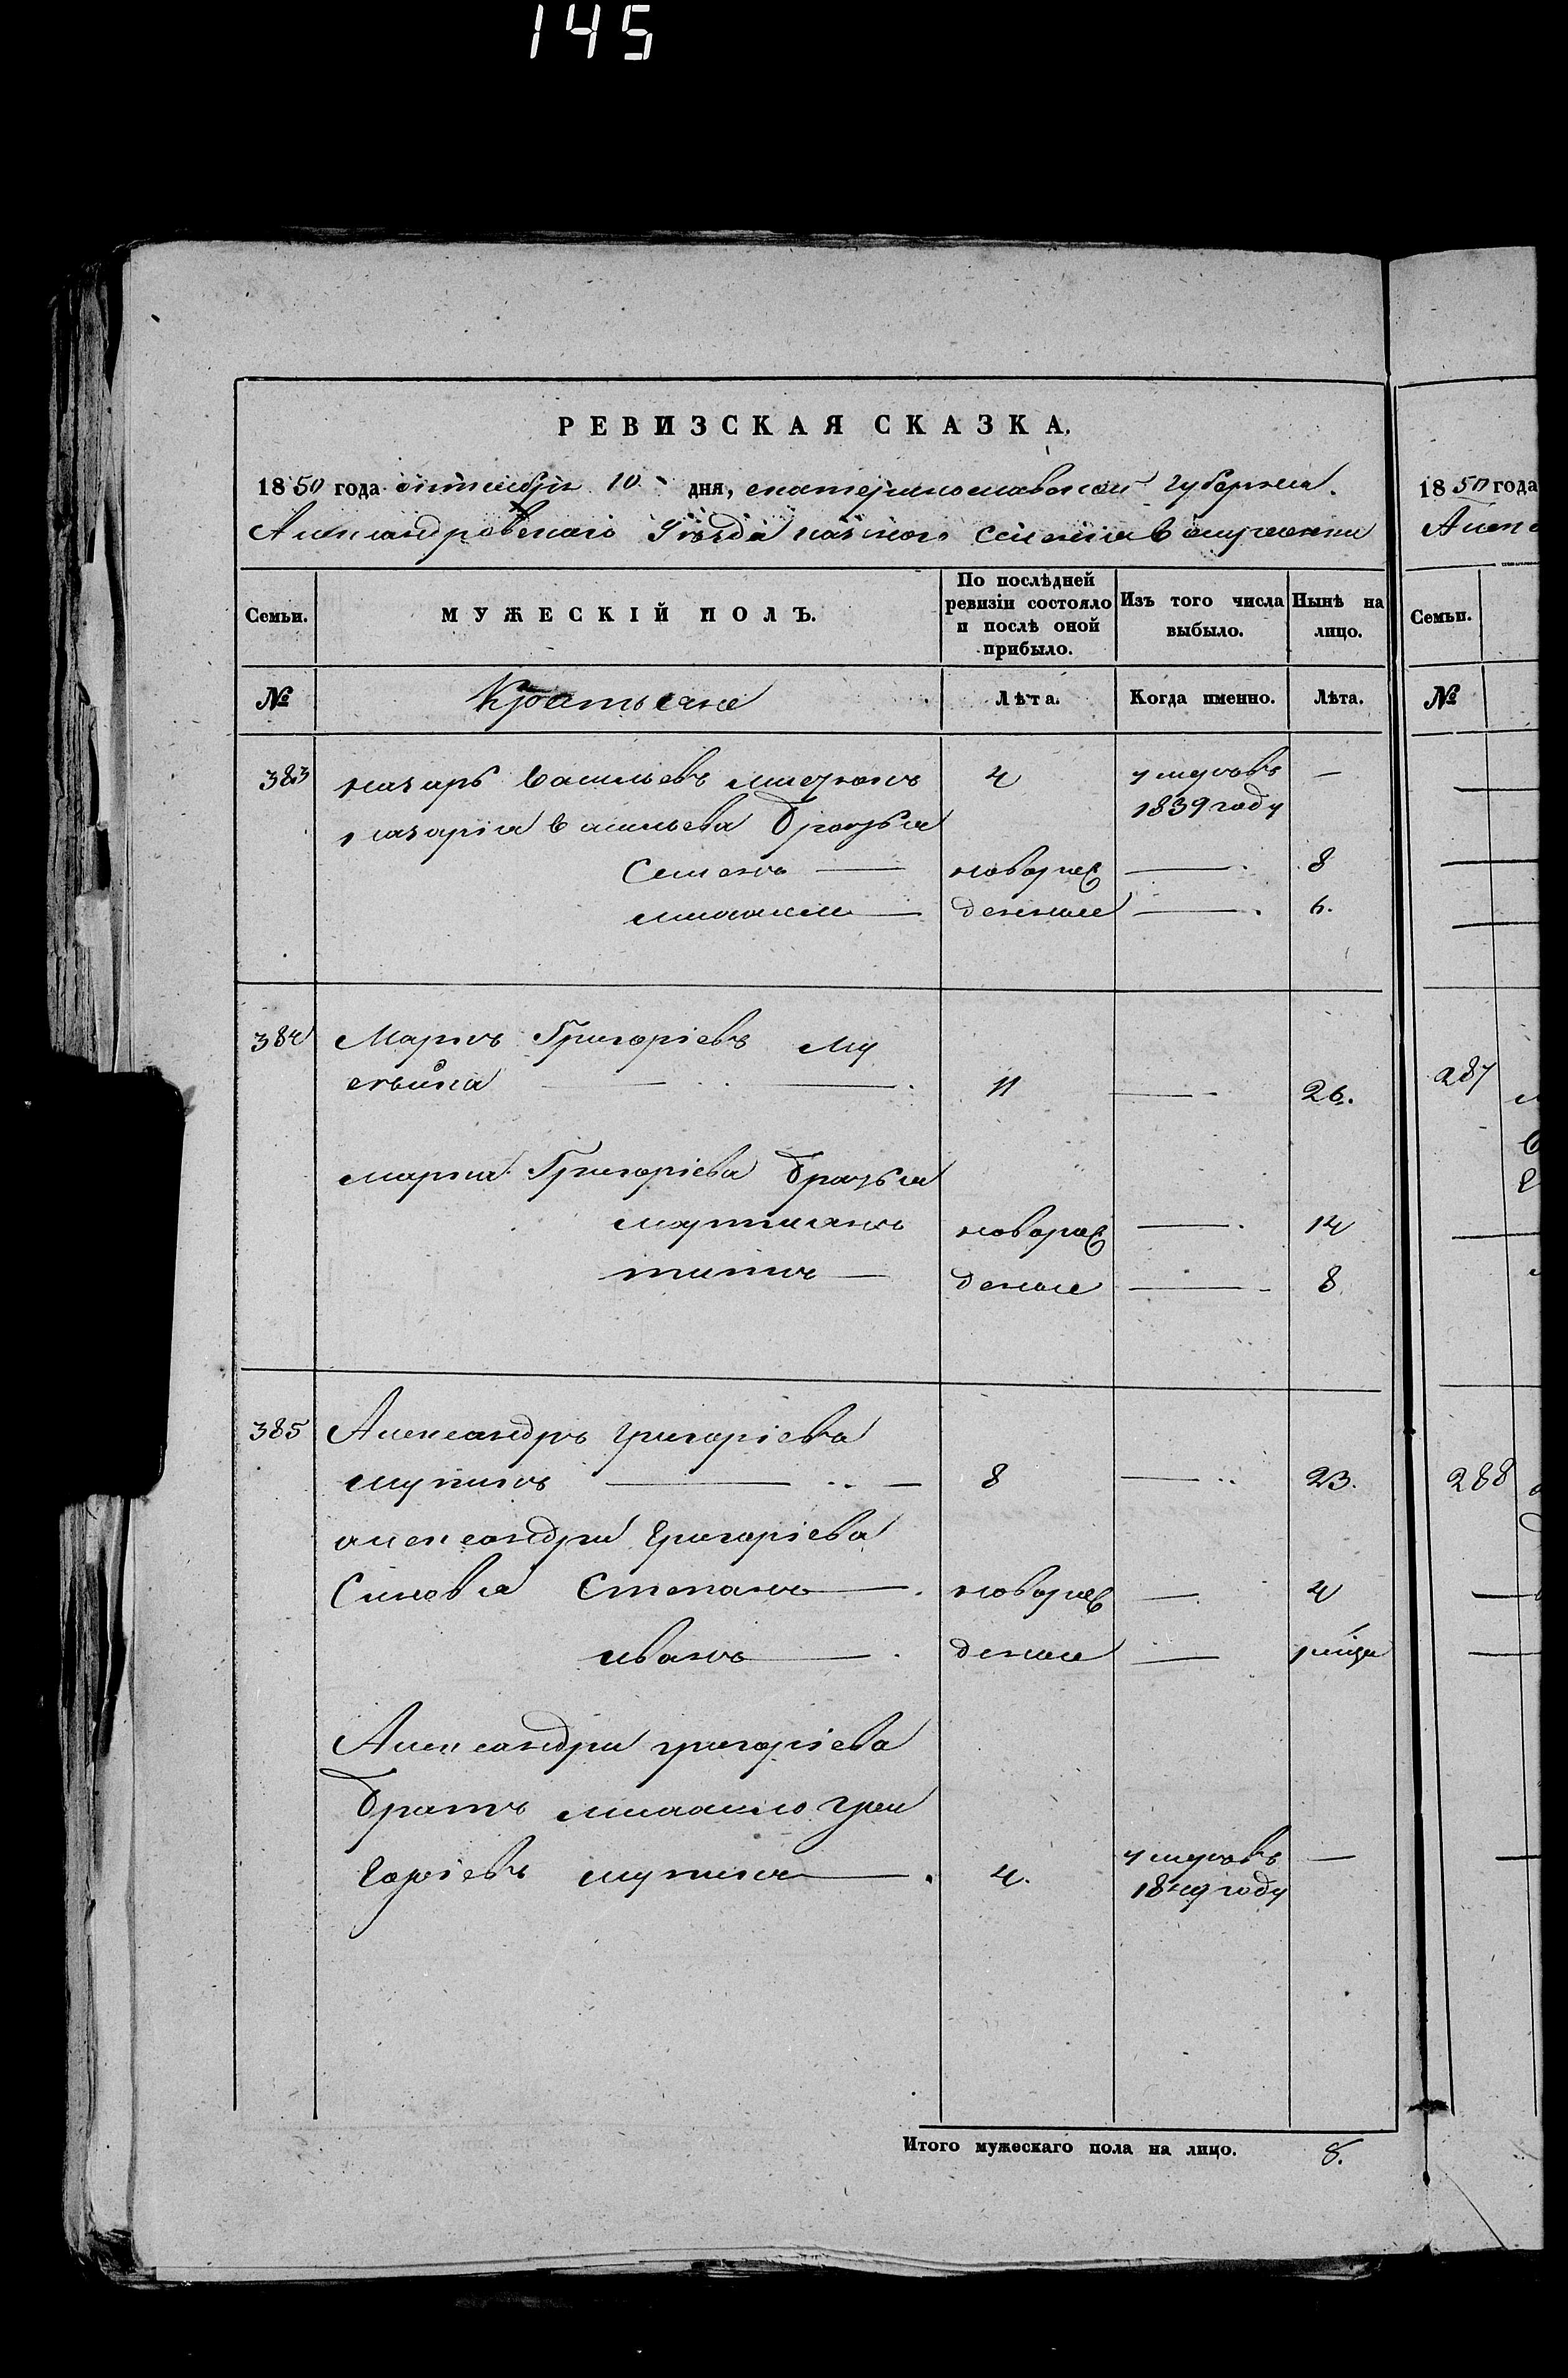 145
РЕВИЗСКАЯ СКАЗКА.
1850 года октября 10 дня, екатеринославской губернии.
Александровского Уезда казенного селения
Семьи.
МУЖЕСКІЙ ПОЛЪ.
По послѣдней ревизіи состояло и послѣ оной прибыло.
Изъ того числа выбыло.
Нынѣ на лицо.
№
Крестьяне
Лѣта.
Когда именно.
Лѣта.
383 назаръ васильевъ 4 умеръ въ —
назарія васильева братья 1839 году
Семенъ — новорож — 8
михаилъ — денные — 6.
384 Маркъ Григоріевъ
11 — 26.
марка Григоріева братья
мартинъ новорож — 14
титъ —деные — 8
385 Александръ григоріева
8 — 23.
александра григоріева
Синовья Степанъ — новорож — 4
иванъ — деные —
Александра григоріева
братъ михаило гри
горіевъ 4. умеръ въ —
1849 году
Итого мужескаго пола на лицо. 8.
1850 года
Алекс
Семьи.
№
287
288